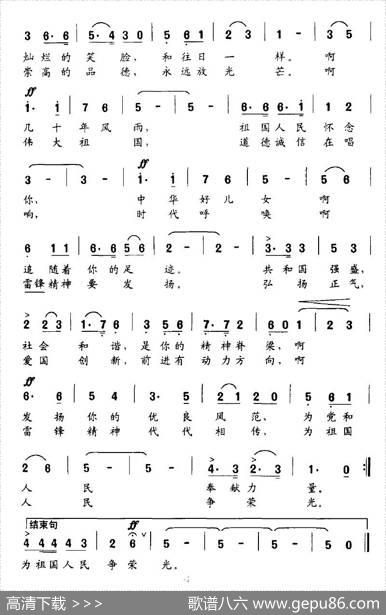 3 6·6 | 5·4 3 0 | 5 6 1 2 3 | 5 - | 5 0 3 |
灿烂的笑脸，和往日一样。啊
崇高的品德，永远放光芒。啊
ff
1· 1 | 7 6 | 5 - | 5 - | 6·6 6 1 | 1 2 |
几十年风雨，祖国人民怀念
伟大祖国，道德诚信在唱
ff
3 - | 3 - | 1· 1 | 7 6 | 2 - | 5 - | 5 6 |
你，中华好儿女啊
响，时代呼唤啊
6 1 1 | 6·6 5 6 | 2 - | 2 - | 3·3 3 | 5 5 |
追随着你的足迹。共和国强盛，
雷锋精神要发扬。弘扬正气，
2 2 3 | 1·7 6 | 3 5 6 | 7·7 7 2 | 6 0 1 | 1 2 3 |
社会和谐，是你的精神脊梁，啊
爱国创新，前进有动力方向，啊
ff
6· 6 | 5 4 | 3· 5 | 2 1 2 0 | 5 - | 5 6 1 |
发扬你的优良风范，为党和
雷锋精神代代相传，为祖国
2 6 | 5 - | 5 - | 4·3 2·3 | 1· 0 :|
人民奉献力量。
人民争荣光。
结束句
ff
4 4 4 4 3 | 2 2 | 5 - | 5 - | 5 - | 5 0 ‖
为祖国人民争荣光。
高清下载 >>>
歌谱八六 www.gepu86.com